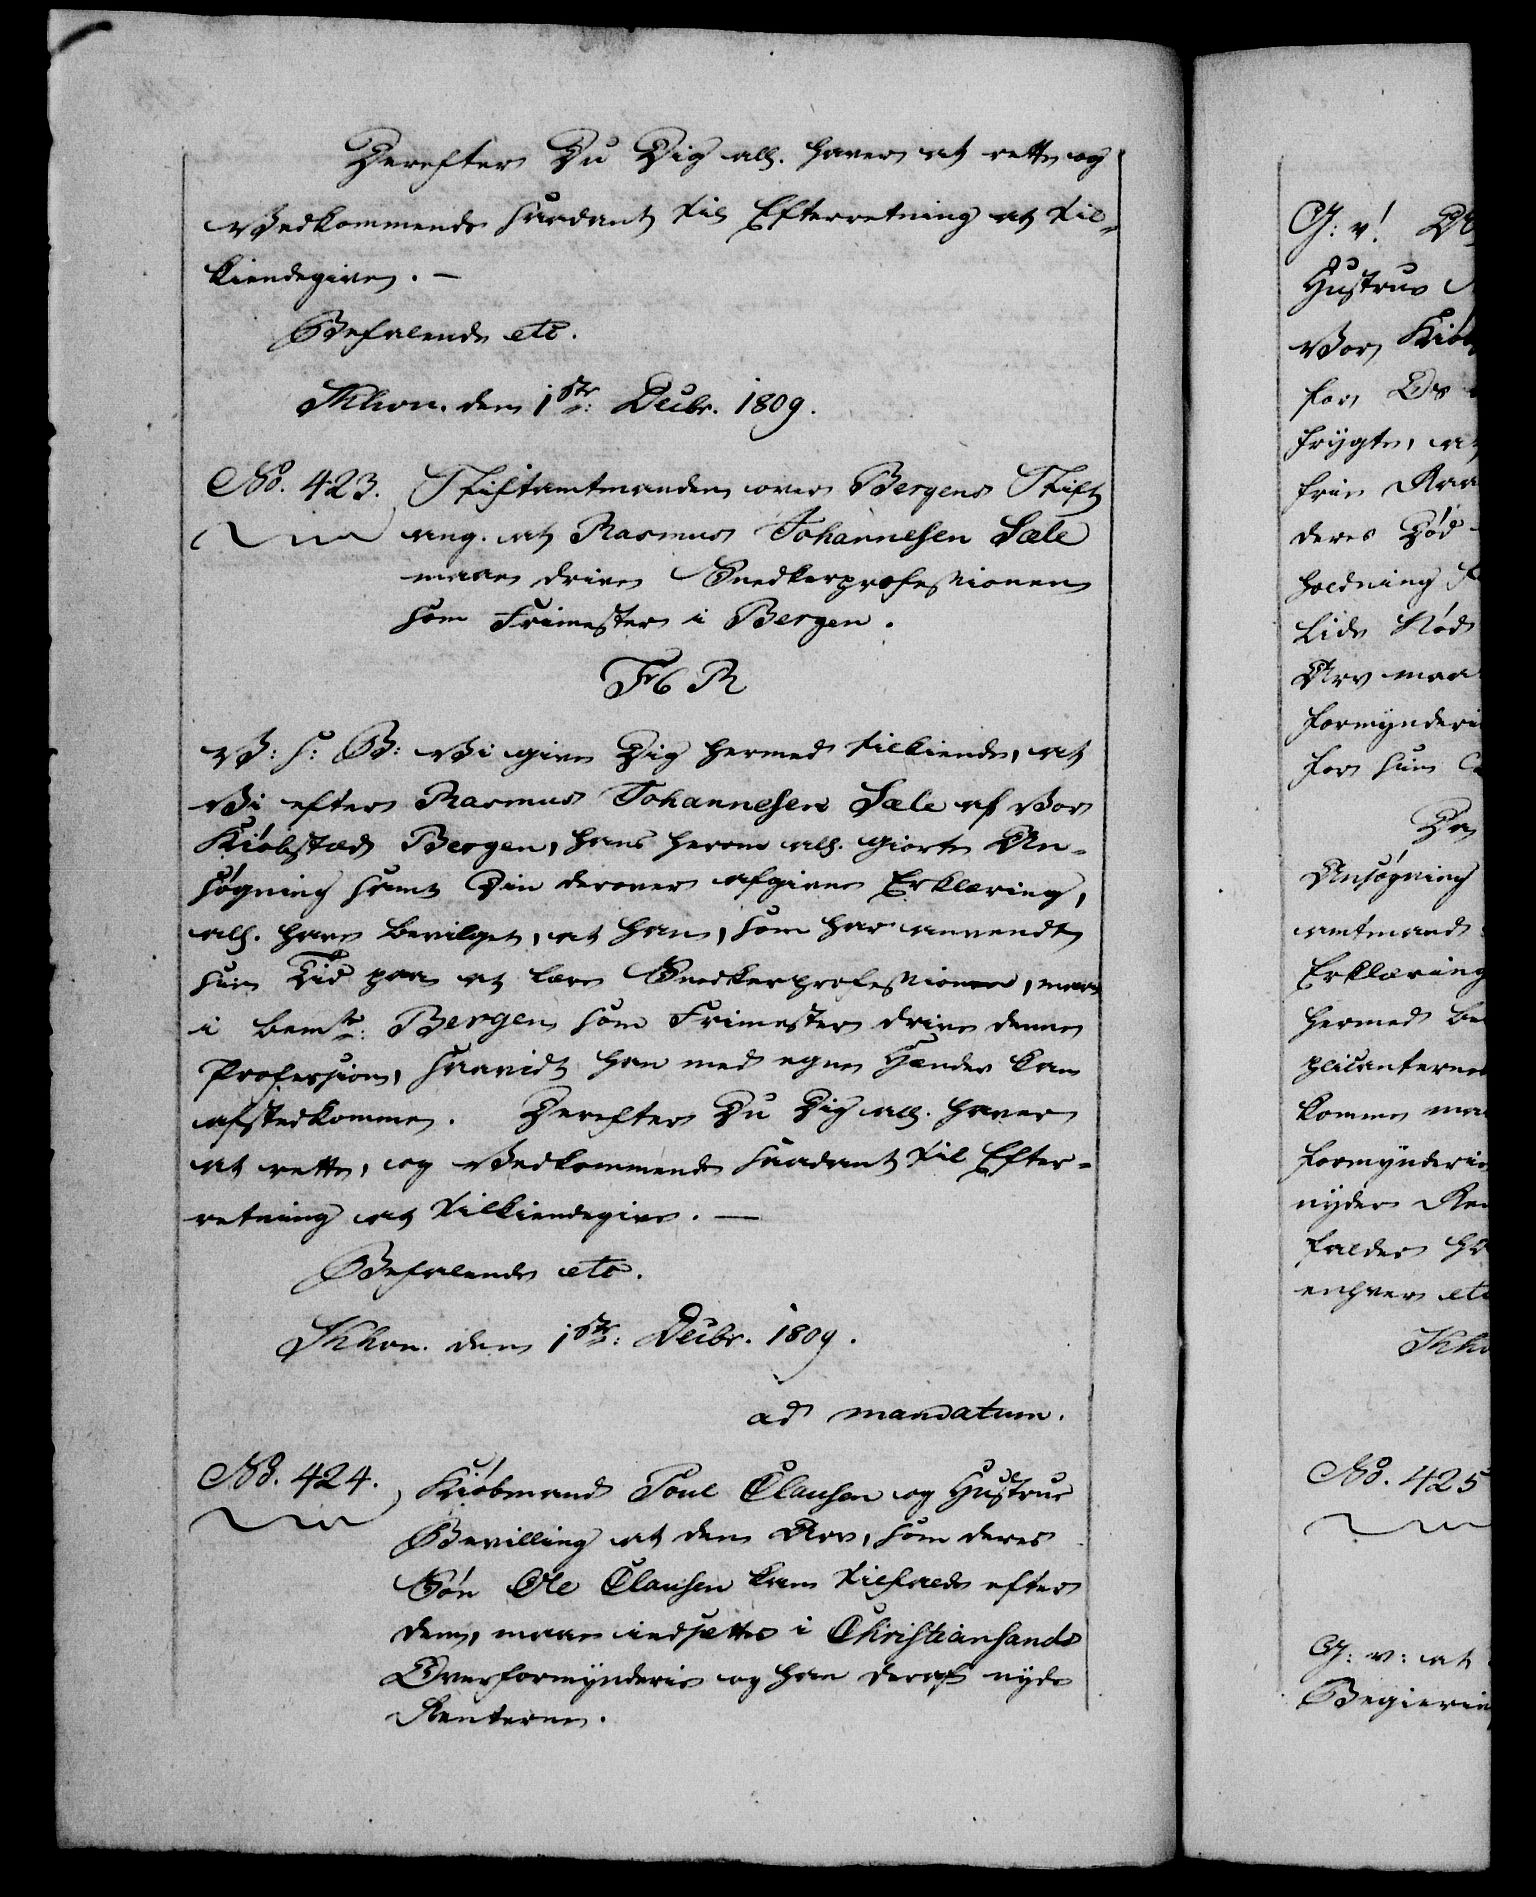 Derefter Du Dig all. haver at rette og
Vedkommende saadant til Efterretning at til-
kiendegive. —
Befalende etc.
Khvn. den 1ste: Decbr. 1809.
No. 423. Stiftamtmanden over Bergens Stift
ang. at Rasmus Johannesen Sæle
maae drive Snedkerprofessionen
som Frimester i Bergen.
F6 R
V: S: B: Vi give Dig hermed tilkiende, at
Vi efter Rasmus Johannesen Sæle af Vor
Kiøbstæd Bergen, hans herom all. giorte An-
søgning samt Din derover afgivne Erklæring,
all. have bevilget, at han, som har anvendt
sin Tid paa at lære Snedkerprofessionen, maae
i bemte: Bergen som Frimester drive denne
Profession, saavidt han med egne Hænder kan
afstedkomme. Derefter Du Dig all. haver
at rette, og Vedkommende saadant til Efter-
retning at tilkiendegive. —
Befalende etc.
Khvn. den 1ste: Decbr. 1809.
ad mandatum.
No. 424. Kiøbmand Poul Clausen og Hustrue
Bevilling at den Arv, som deres
Søn Ole Clausen kan tilfalde efter
dem, maae indsættes i Christiansands
Overformynderie og han deraf nyde
Renterne.
G: v!
Hustrue
Vor Kiøb
for Os
frygte, at
frie Raa
deres Død
holdning
lide Nød
Arv maa
formynderi
for sin
Da
Ansøgning
amtmand
Erklæring
hermed be
plicanternes
komme maa
formynderie
nyder Ren
falder
enhver etc
Khv
No. 425
G: v: at
Begiering